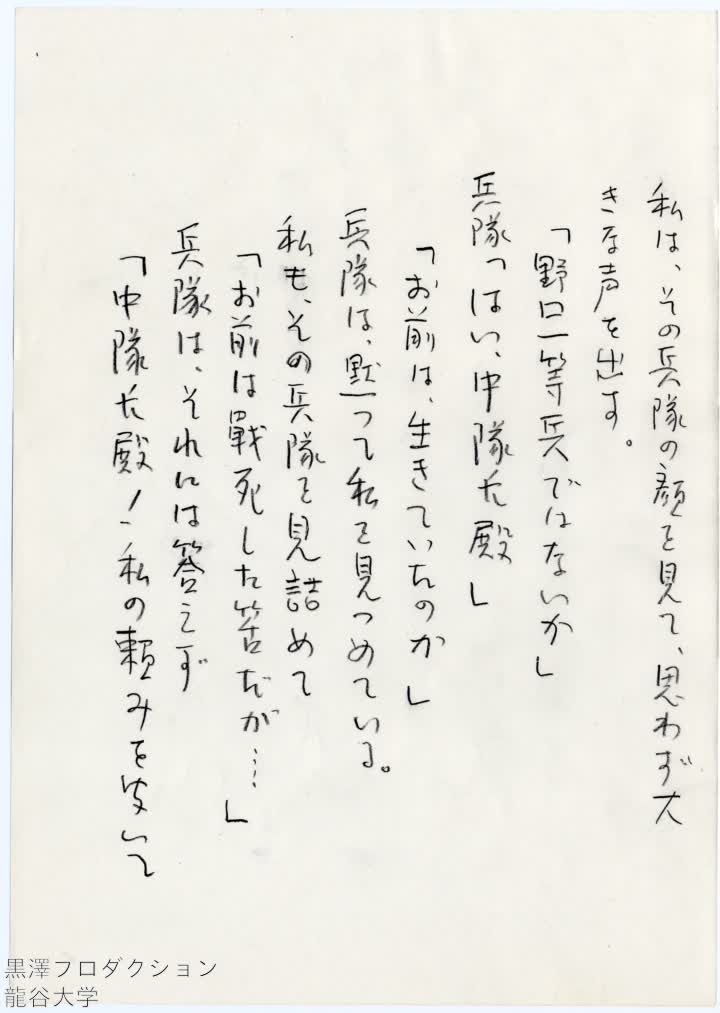 私は、その兵隊の顔を見て、思わず大
きな声を出す。
「野口一等兵ではないか」
兵隊「はい、中隊長殿」
「お前は、生きていたのか」
兵隊は、黙って私を見つめている。
私も、その兵隊を見詰めて
「お前は戦死した筈だが……」
兵隊は、それには答えず
「中隊長殿！私の頼みを聞いて
黒澤プロダクション
龍谷大学